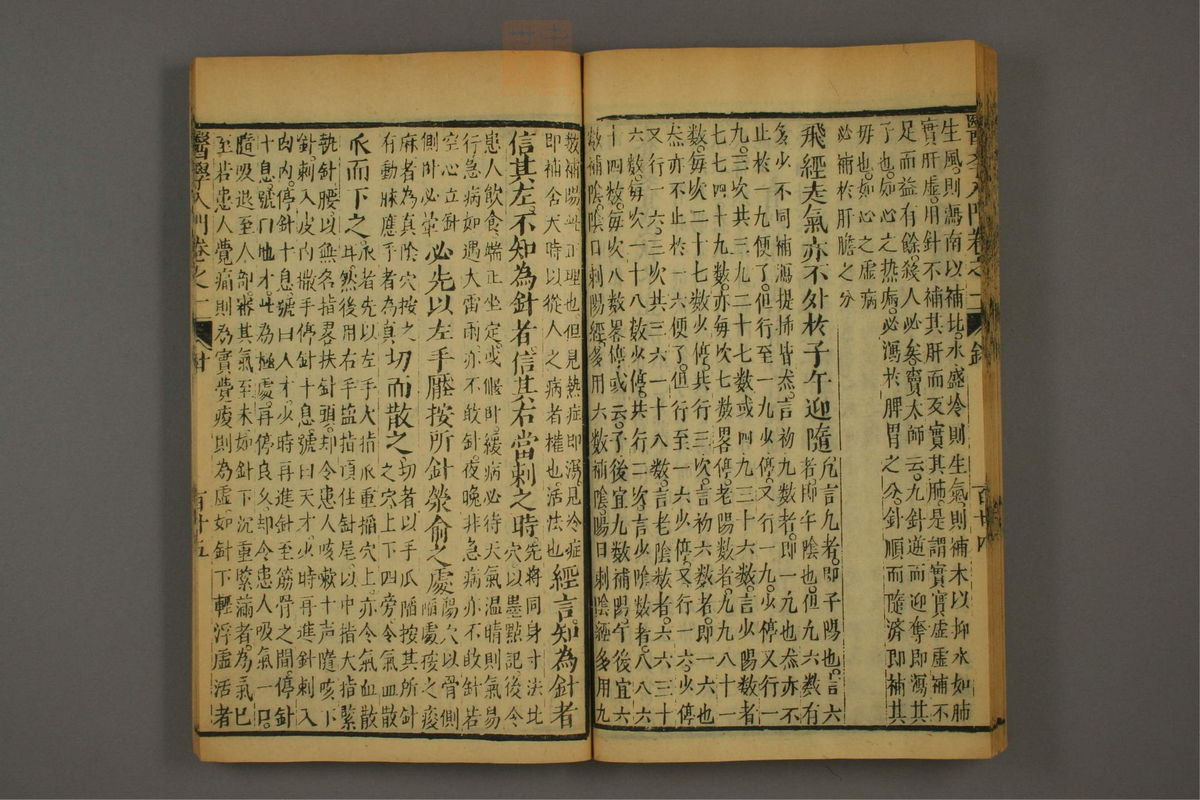 生風則瀉南以補北水盛冷則生氣則補木以抑水如肺
實肝虛用針不補其肝而反實其肺是謂實實虛虛補不
足而益有餘殺人必矣竇太師云九針逆而迎奪即瀉其
子也如心之热病必瀉於脾胃之分針順而隨濟即補其
母也如心之虛病
必補於肝膽之分
飛經走氣亦不外於子午迎隨凡言九者即子陽也言六
者即午陰也但九六數有
多少不同補瀉提插皆然言初九數者即一九也然亦不
止於一九便了但行至一九少停又行一九少停又行一
九三次共三九二十七數或四九三十六數言少陽數者
七七四十九數亦每次七數畧停老陽數者九九八十一
數每次二十七數少停共行三次言初六數者即一六也
然亦不止於一六便了但行至一六少停又行一六少停
又行一六三次共三六一十八數言老陰數者六六三十
六數每次一十八數少停共行二次言少陰數者八八六
十四數每次八數畧停或云子後宜九數補陽午後宜六
數補陰陰日刺陽經多用六數補陰陽日刺陰經多用九
數補陽此正理也但見熱症即瀉見冷症
即補舍天時以從人之病者權也活法也
經言知為針者
信其左不知為針者信其右當刺之時先將同身寸法比
穴以墨點記後令
患人飲食端正坐定或偃卧緩病必待天氣温晴則氣易
行急病如遇大雷雨亦不敢針夜晚非急病亦不敢針若
空心立針
側卧必暈
必先以左手壓按所針滎俞之處陽穴以骨側
陷處痠之痠
麻者為真陰穴按之
有動脉應手者為真
切而散之切者以手爪陷按其所針
之穴上下四旁令氣血散
爪而下之爪者先以左手大指爪重搯穴上亦令氣血散
耳然後用右手盐指頂住針尾以中指大指緊
執針腰以無名指畧扶針頭却令患人咳嗽十声隨咳下
針刺入皮內撒手停針十息號曰天才少時再進針刺入
肉內停針十息號曰人才少時再進針至筋骨之間停針
十息號曰地才此為極處再停良久却令患人吸氣一口
隨吸退至人部審其氣至未如針下沉重緊滿者為氣已
至若患人覺痛則為實覺痠則為虛如針下輕浮虛活者
醫學入門卷之一 針 百十五
醫學入門卷之一 針 百十四